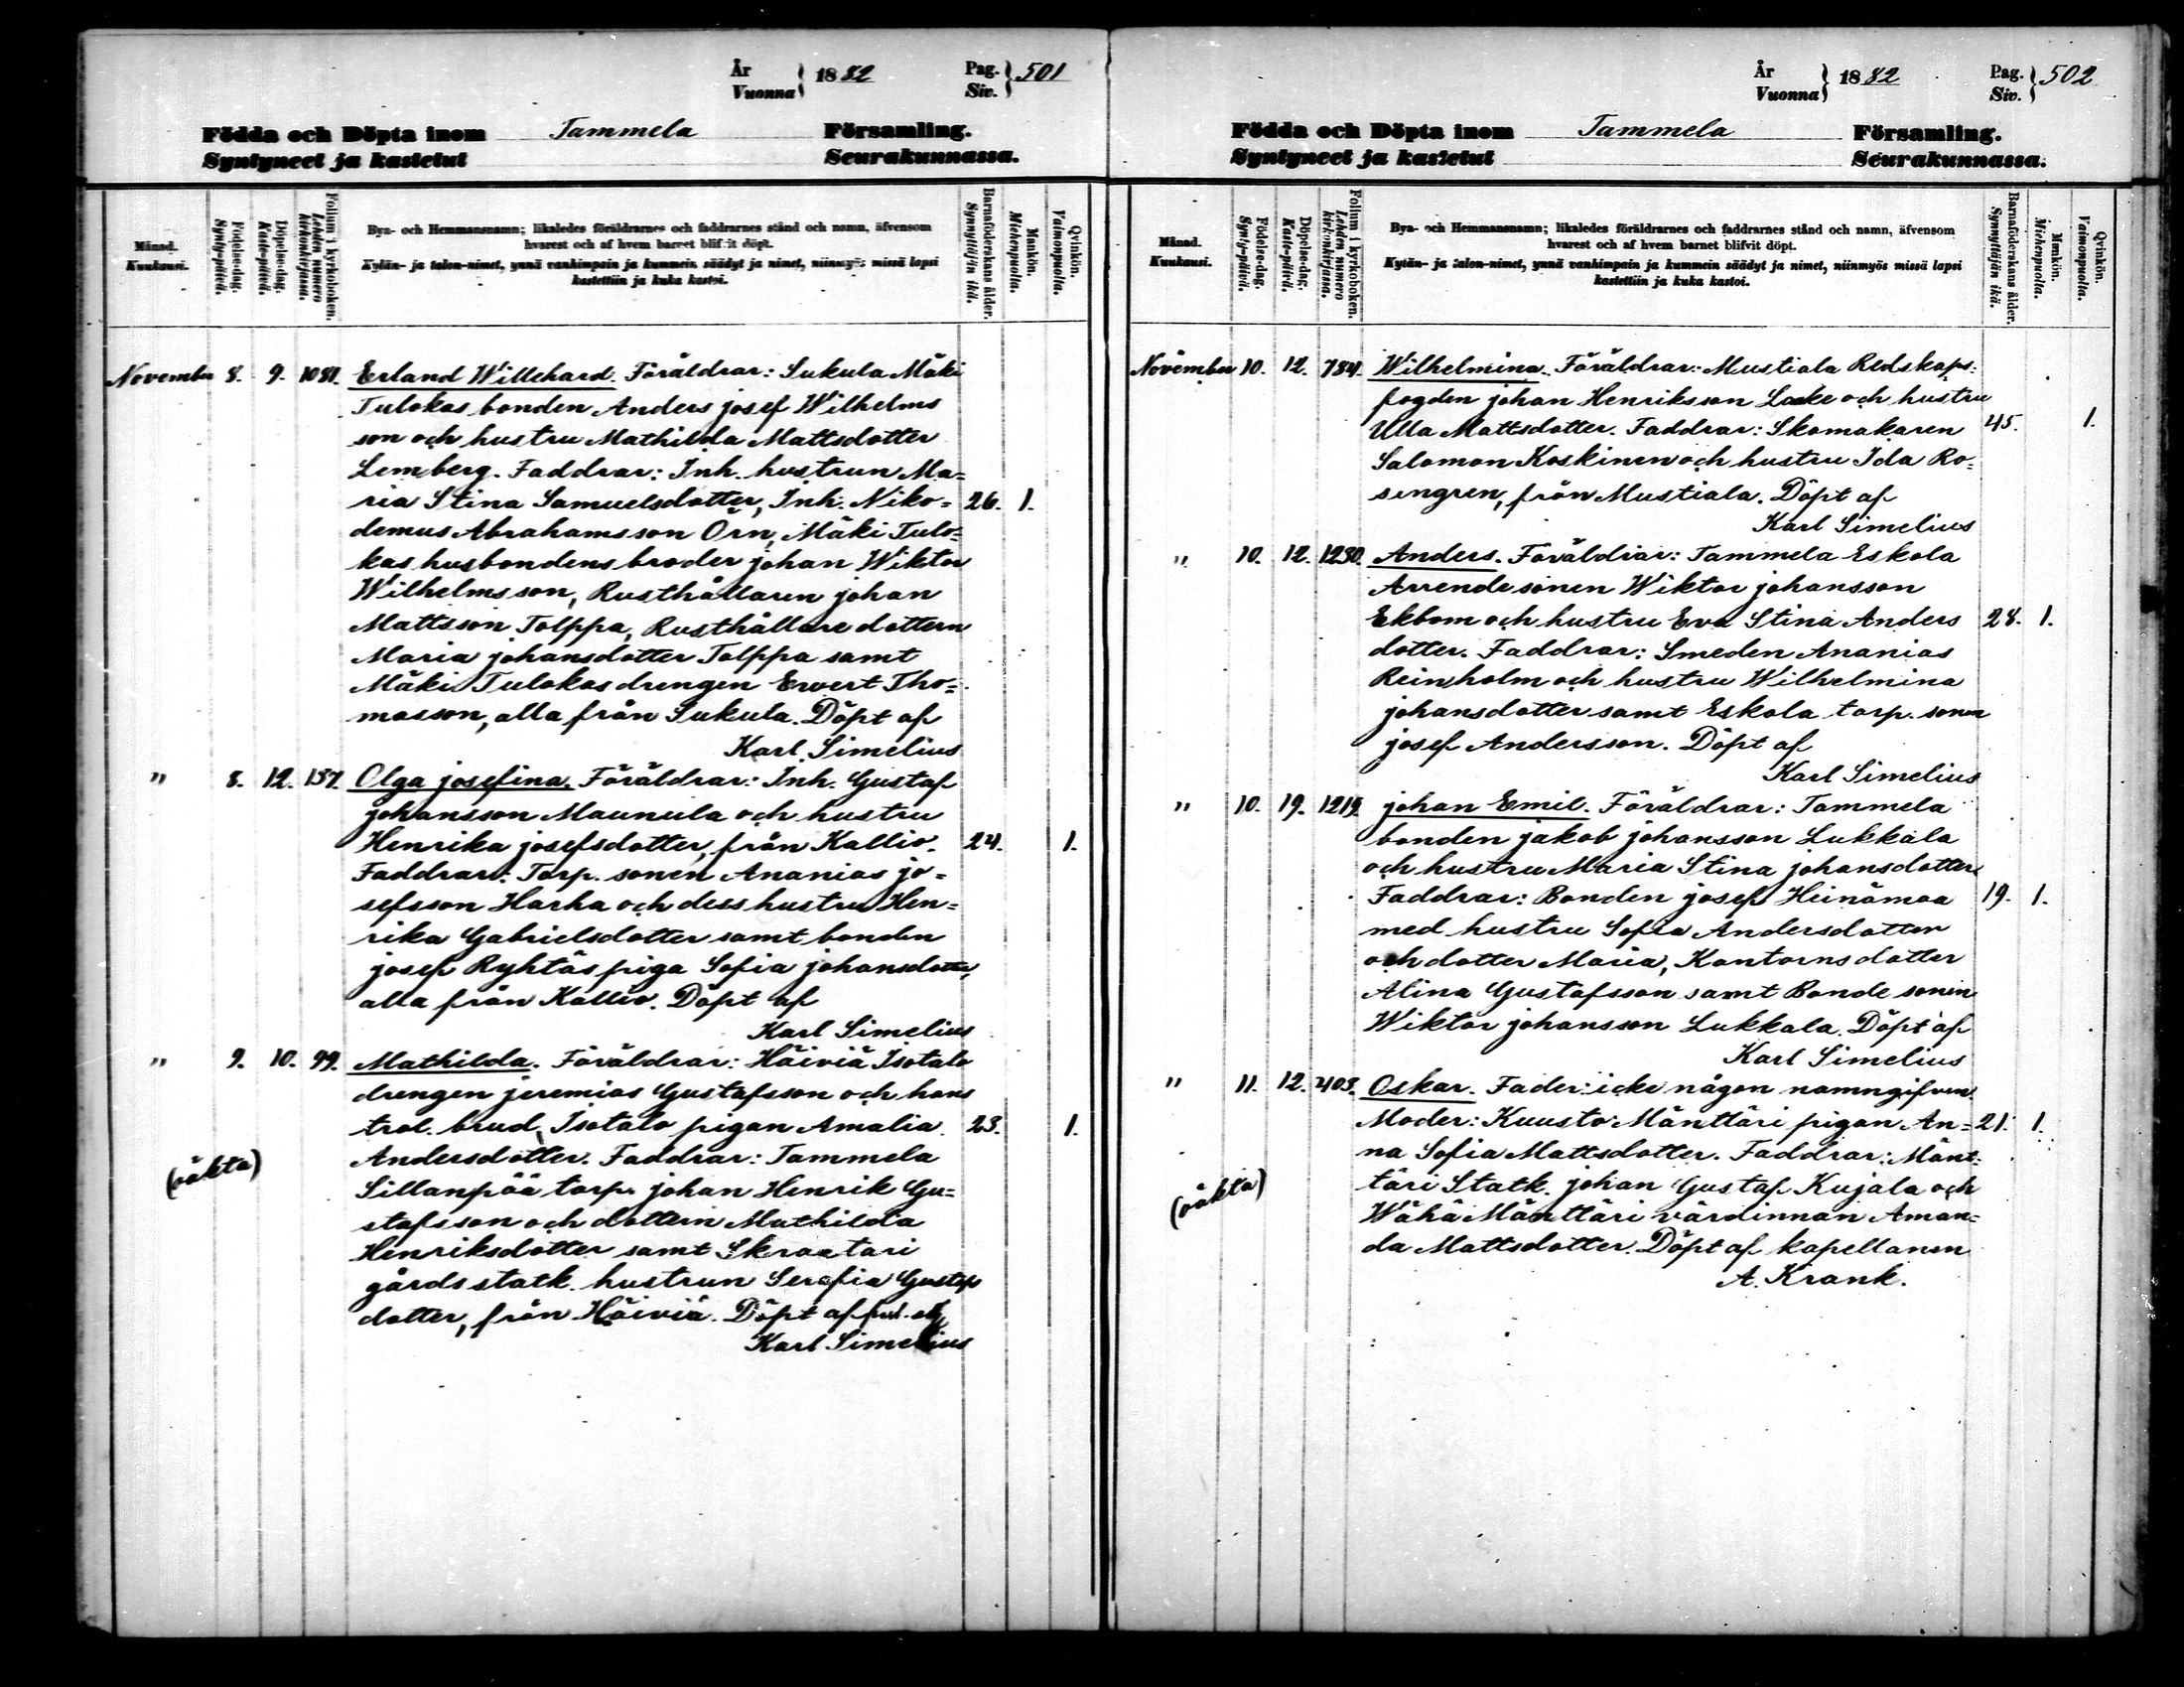 År
Vuonna } 1882 Pag.
Siv. } 501
Födda och Döpta inom Tammela Församling.
Syntyneet ja kastetut Seurakunnassa.
Månad.
Kuukausi.
Födelse-dag.
Synty-päivä.
Döpelse-dag.
Kaste-päivä.
Folium i kyrkoboken.
Lehden numero
kirkonkirjassa.
Bya- och Hemmansnamn; likaledes föräldrarnes och faddrarnes stånd och namn, äfvensom
hvarest och af hvem barnet blifvit döpt.
Kylän- ja talon-nimet, ynnä vanhimpain ja kummein säädyt ja nimet, niinmyös missä lapsi
kastettiin ja kuka kastoi.
Barnaföderskans ålder.
Synnyttäjän ikä.
Mankön.
Miehenpuolia.
Qvinkön.
Vaimonpuolia.
November 8. 9. 1081. Erland Willehard. Föräldrar: Sukula Mäki
Tulokas bonden Anders josef Wilhelms
son och hustru Mathilda Mattsdotter
Lemberg. Faddrar: Inh. hustrun Ma=
ria Stina Samuelsdotter, Inh. Niko= 26. 1.
demus Abrahamsson Örn, Mäki Tulo=
kas husbondens broder johan Wiktor
Wilhelmsson, Rusthållaren johan
Mattsson Tolppa, Rusthållare dottern
Maria johansdotter Tolppa samt
Mäki Tulokas drengen Ewert Tho=
masson, alla från Sukula. Döpt af
Karl Simelius
" 8. 12. 137. Olga josefina. Föräldrar: Inh. Gustaf
johansson Maunula och hustru
Henrika josefsdotter, från Kallio. 24. 1.
Faddrar: Torp. sonen Ananias jo=
sefsson Harha och dess hustru Hen=
rika Gabrielsdotter samt bonden
josef Ryhtäs piga Sofia johansdotter,
alla från Kallio. Döpt af
Karl Simelius
" 9. 10. 99. Mathilda. Föräldrar: Häiviä Isotalo
drengen jeremias Gustafsson och hans
trol. brud, Isotalo pigan Amalia 23. 1.
(oäkta) Andersdotter. Faddrar: Tammela
Sillanpää torp. johan Henrik Gu=
stafsson och dottern Mathilda
Henriksdotter samt Skraatari
gårds statk. hustrun Serafia Gustafs
dotter, från Häiviä. Döpt af
Karl Simelius
År
Vuonna } 1882 Pag.
Siv. } 502
Födda och Döpta inom Tammela Församling.
Syntyneet ja kastetut Seurakunnassa.
Månad.
Kuukausi.
Födelse-dag.
Synty-päivä.
Döpelse-dag.
Kaste-päivä.
Folium i kyrkoboken.
Lehden numero
kirkonkirjassa.
Bya- och Hemmansnamn; likaledes föräldrarnes och faddrarnes stånd och namn, äfvensom
hvarest och af hvem barnet blifvit döpt.
Kylän- ja talon-nimet, ynnä vanhimpain ja kummein säädyt ja nimet, niinmyös missä lapsi
kastettiin ja kuka kastoi.
Barnaföderskans ålder.
Synnyttäjän ikä.
Mankön.
Miehenpuolia.
Qvinkön.
Vaimonpuolia.
November 10. 12. 784. Wilhelmina. Föräldrar: Mustiala Redskaps=
fogden johan Henriksson Laske och hustru
Ulla Mattsdotter. Faddrar: Skomakaren 45. 1.
Salomon Koskinen och hustru Ida Ro=
sengren, från Mustiala. Döpt af
Karl Simelius
" 10. 12. 1230. Anders. Föräldrar: Tammela Eskola
Arrende sonen Wiktor johansson
Ekbom och hustru Eva Stina Anders 28. 1.
dotter. Faddrar: Smeden Ananias
Reinholm och hustru Wilhelmina
johansdotter samt Eskola torp. sonen
josef Andersson. Döpt af
Karl Simelius
" 10. 19. 1219. johan Emil. Föräldrar: Tammela
bonden jakob johansson Lukkala
och hustru Maria Stina johansdotter
Faddrar: Bonden josef Heinämaa 19. 1.
med hustru Sofia Andersdotter
och dotter Maria, Kantorns dotter
Alina Gustafsson samt Bonde sonen
Wiktor johansson Lukkala. Döpt af
Karl Simelius
" 11. 12. 403. Oskar. Fader: icke någon namngifven.
Moder: Kuusto Mänttäri pigan An= 21. 1.
na Sofia Mattsdotter. Faddrar: Mänt=
(oäkta) täri Statk. johan Gustaf Kujala och
Wähä Mänttäri värdinnan Aman=
da Mattsdotter. Döpt af kapellanen
A. Krank.